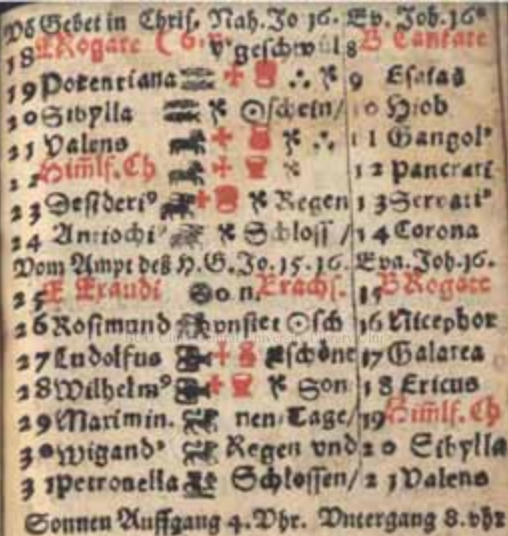 Vō Gebet in Chris. Nah. Jo 16. Ev. Joh. 16
18 E Rogate geschwül 8 B Cantate
19 Potentiana 9 Esaias
20 Sibylla ☉schein/ 10 Hiob
21 Valens 11 Gangol'
22 Him̄lf. Ch 12 Pancrati
23 Desideri' Regen 13 Servati'
24 Antiochi' Schloss/ 14 Corona
Vom Ampt deß H. G. Jo. 15. 16. Eva. Joh. 16.
25 E Exaudi 15 B Rogate
26 Rosimund ☉sch 16 Nicephor
27 Ludolfus schöne 17 Galatea
28 Wilhelm' Son 18 Ericus
29 Maximin. nen Tage/ 19 Him̄lf. Ch
30 Wigand' Regen vnd 20 Sibylla
31 Petronella Schlossen/ 21 Valens
Sonnen Auffgang 4. Vhr. Vntergang 8. vhr